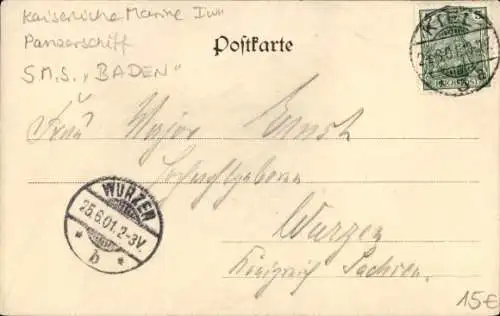 Kaiserliche Marine I WK
Panzerschiff
S.M.S. „BADEN"
Postkarte
KIEL
Frau Major Ernst
Hochwohlgeboren
Wurzen
Königreich Sachsen.
WURZEN
25.6.01. 2-3V.
* b *
15€